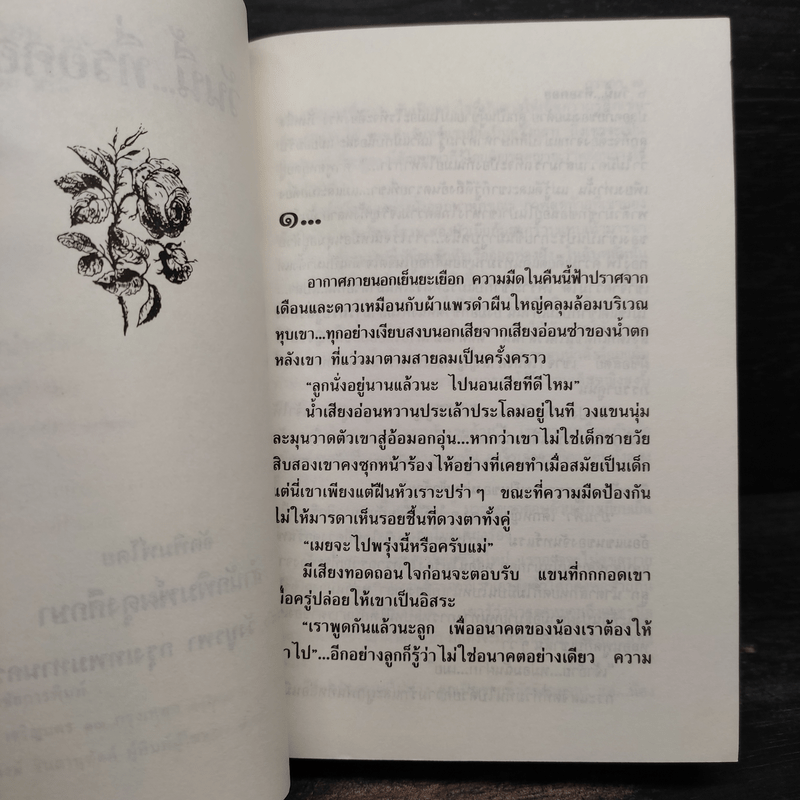 ๑...
อากาศภายนอกเย็นยะเยือก ความมืดในคืนนี้ฟ้าปราศจาก
เดือนและดาวเหมือนกับผ้าแพรดำผืนใหญ่คลุมล้อมบริเวณ
หุบเขา...ทุกอย่างเงียบสงบนอกเสียจากเสียงอ่อนซ่าของน้ำตก
หลังเขา ที่แว่วมาตามสายลมเป็นครั้งคราว
“ลูกนั่งอยู่นานแล้วนะ ไปนอนเสียทีดีไหม”
น้ำเสียงอ่อนหวานประเล้าประโลมอยู่ในที วงแขนนุ่ม
ละมุนวาดตัวเขาสู่อ้อมอกอุ่น...หากว่าเขาไม่ใช่เด็กชายวัย
สิบสองเขาคงซุกหน้าร้องไห้อย่างที่เคยทำเมื่อสมัยเป็นเด็ก
แต่นี่เขาเพียงแต่ฝืนหัวเราะปร่า ๆ ขณะที่ความมืดป้องกัน
ไม่ให้มารดาเห็นรอยชื้นที่ดวงตาทั้งคู่
“เมยจะไปพรุ่งนี้หรือครับแม่”
มีเสียงทอดถอนใจก่อนจะตอบรับ แขนที่กกกอดเขา
เมื่อครู่ปล่อยให้เขาเป็นอิสระ
“เราพูดกันแล้วนะลูก เพื่ออนาคตของน้องเราต้องให้
าไป”...อีกอย่างลูกก็รู้ว่าไม่ใช่อนาคตอย่างเดียว ความ